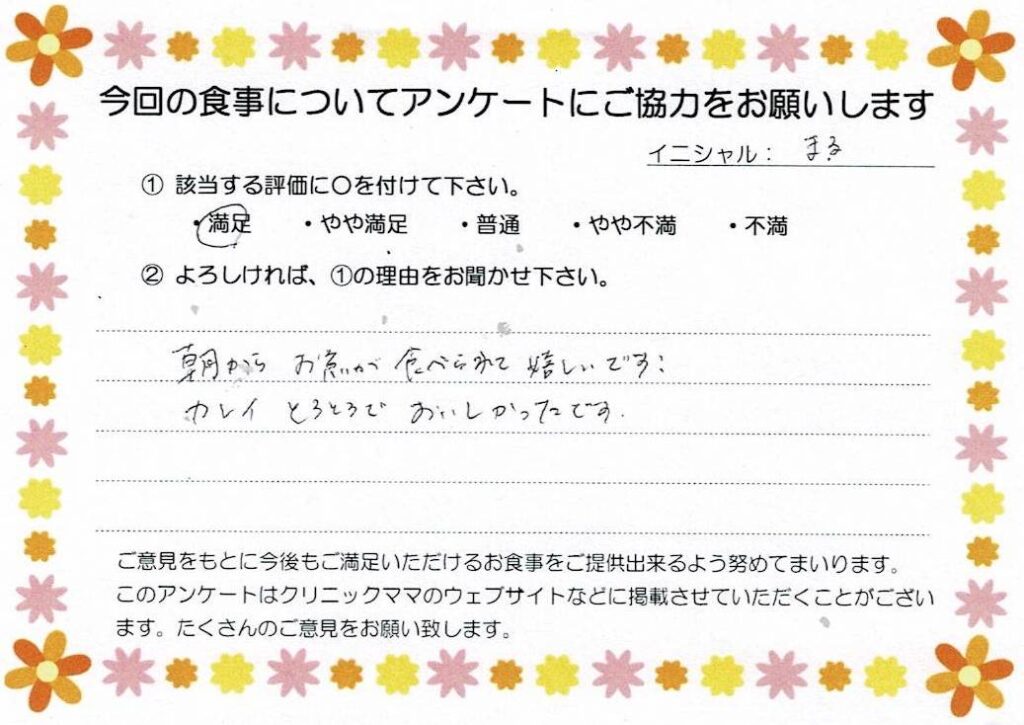 今回の食事についてアンケートにご協力をお願いします
イニシャル： まる
① 該当する評価に〇を付けて下さい。
・満足 ・やや満足 ・普通 ・やや不満 ・不満
② よろしければ、①の理由をお聞かせ下さい。
朝から お魚が 食べられて 嬉しいです!
カレイ とろとろで おいしかったです.
ご意見をもとに今後もご満足いただけるお食事をご提供出来るよう努めてまいります。
このアンケートはクリニックママのウェブサイトなどに掲載させていただくことがござい
ます。たくさんのご意見をお願い致します。